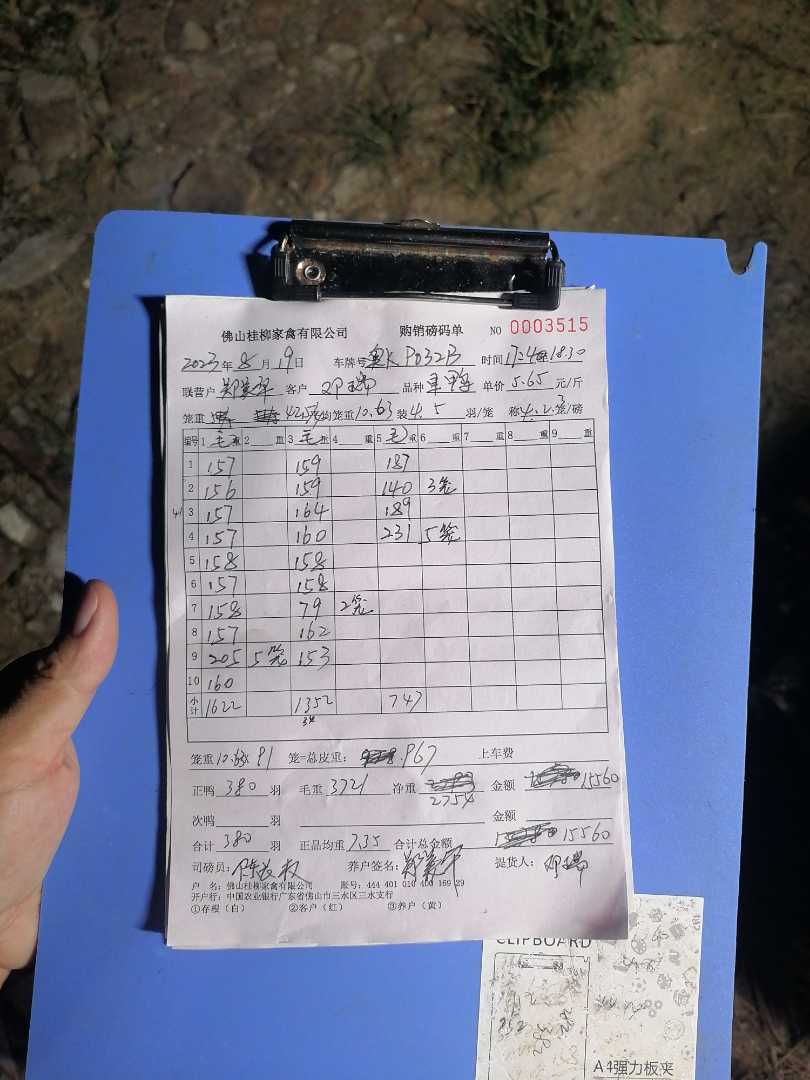 佛山桂柳家禽有限公司 购销磅码单 NO 0003515
2023年8月19日 车牌号 P032B 时间 18:30
联营户 客户 邓瑞 品种 单价 5.65 元/斤
笼重 均笼重 10.63 装 4.5 羽/笼 称 笼/磅
编号 1 毛重 2 重 3 毛重 4 重 5 毛重 6 重 7 重 8 重 9 重
1 157 159 187
2 156 159 140 3笼
3 157 164 189
4 157 160 231 5笼
5 158 158
6 157 158
7 158 79 2笼
8 157 162
9 205 5笼 153
10 160
小计 1622 1352 747
笼重 10.63 X 91 笼=总皮重: 967 上车费
正鸭 380 羽 毛重 3721 净重 2754 金额 15560
次鸭 羽 金额
合计 380 羽 正品均重 7.35 合计总金额 15560
司磅员: 养户签名: 提货人: 邓瑞
户 名: 佛山桂柳家禽有限公司 账号: 444 401 010 400 169 29
开户行: 中国农业银行广东省佛山市三水区三水支行
①存根（白） ②客户（红） ③养户（黄）
CLIPBOARD
A4强力板夹